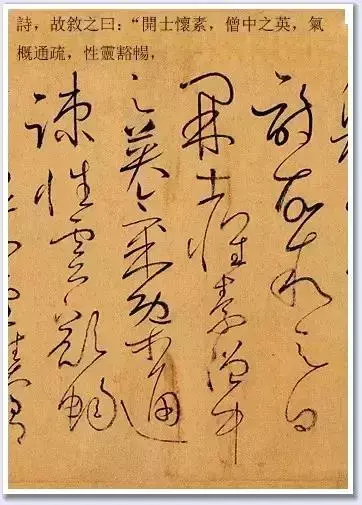 詩，故敘之曰：“開士懷素，僧中之英，氣
概通疏，性靈豁暢，
詩故叙之曰
開士懷素僧中
之英氣概通
疎性靈豁暢